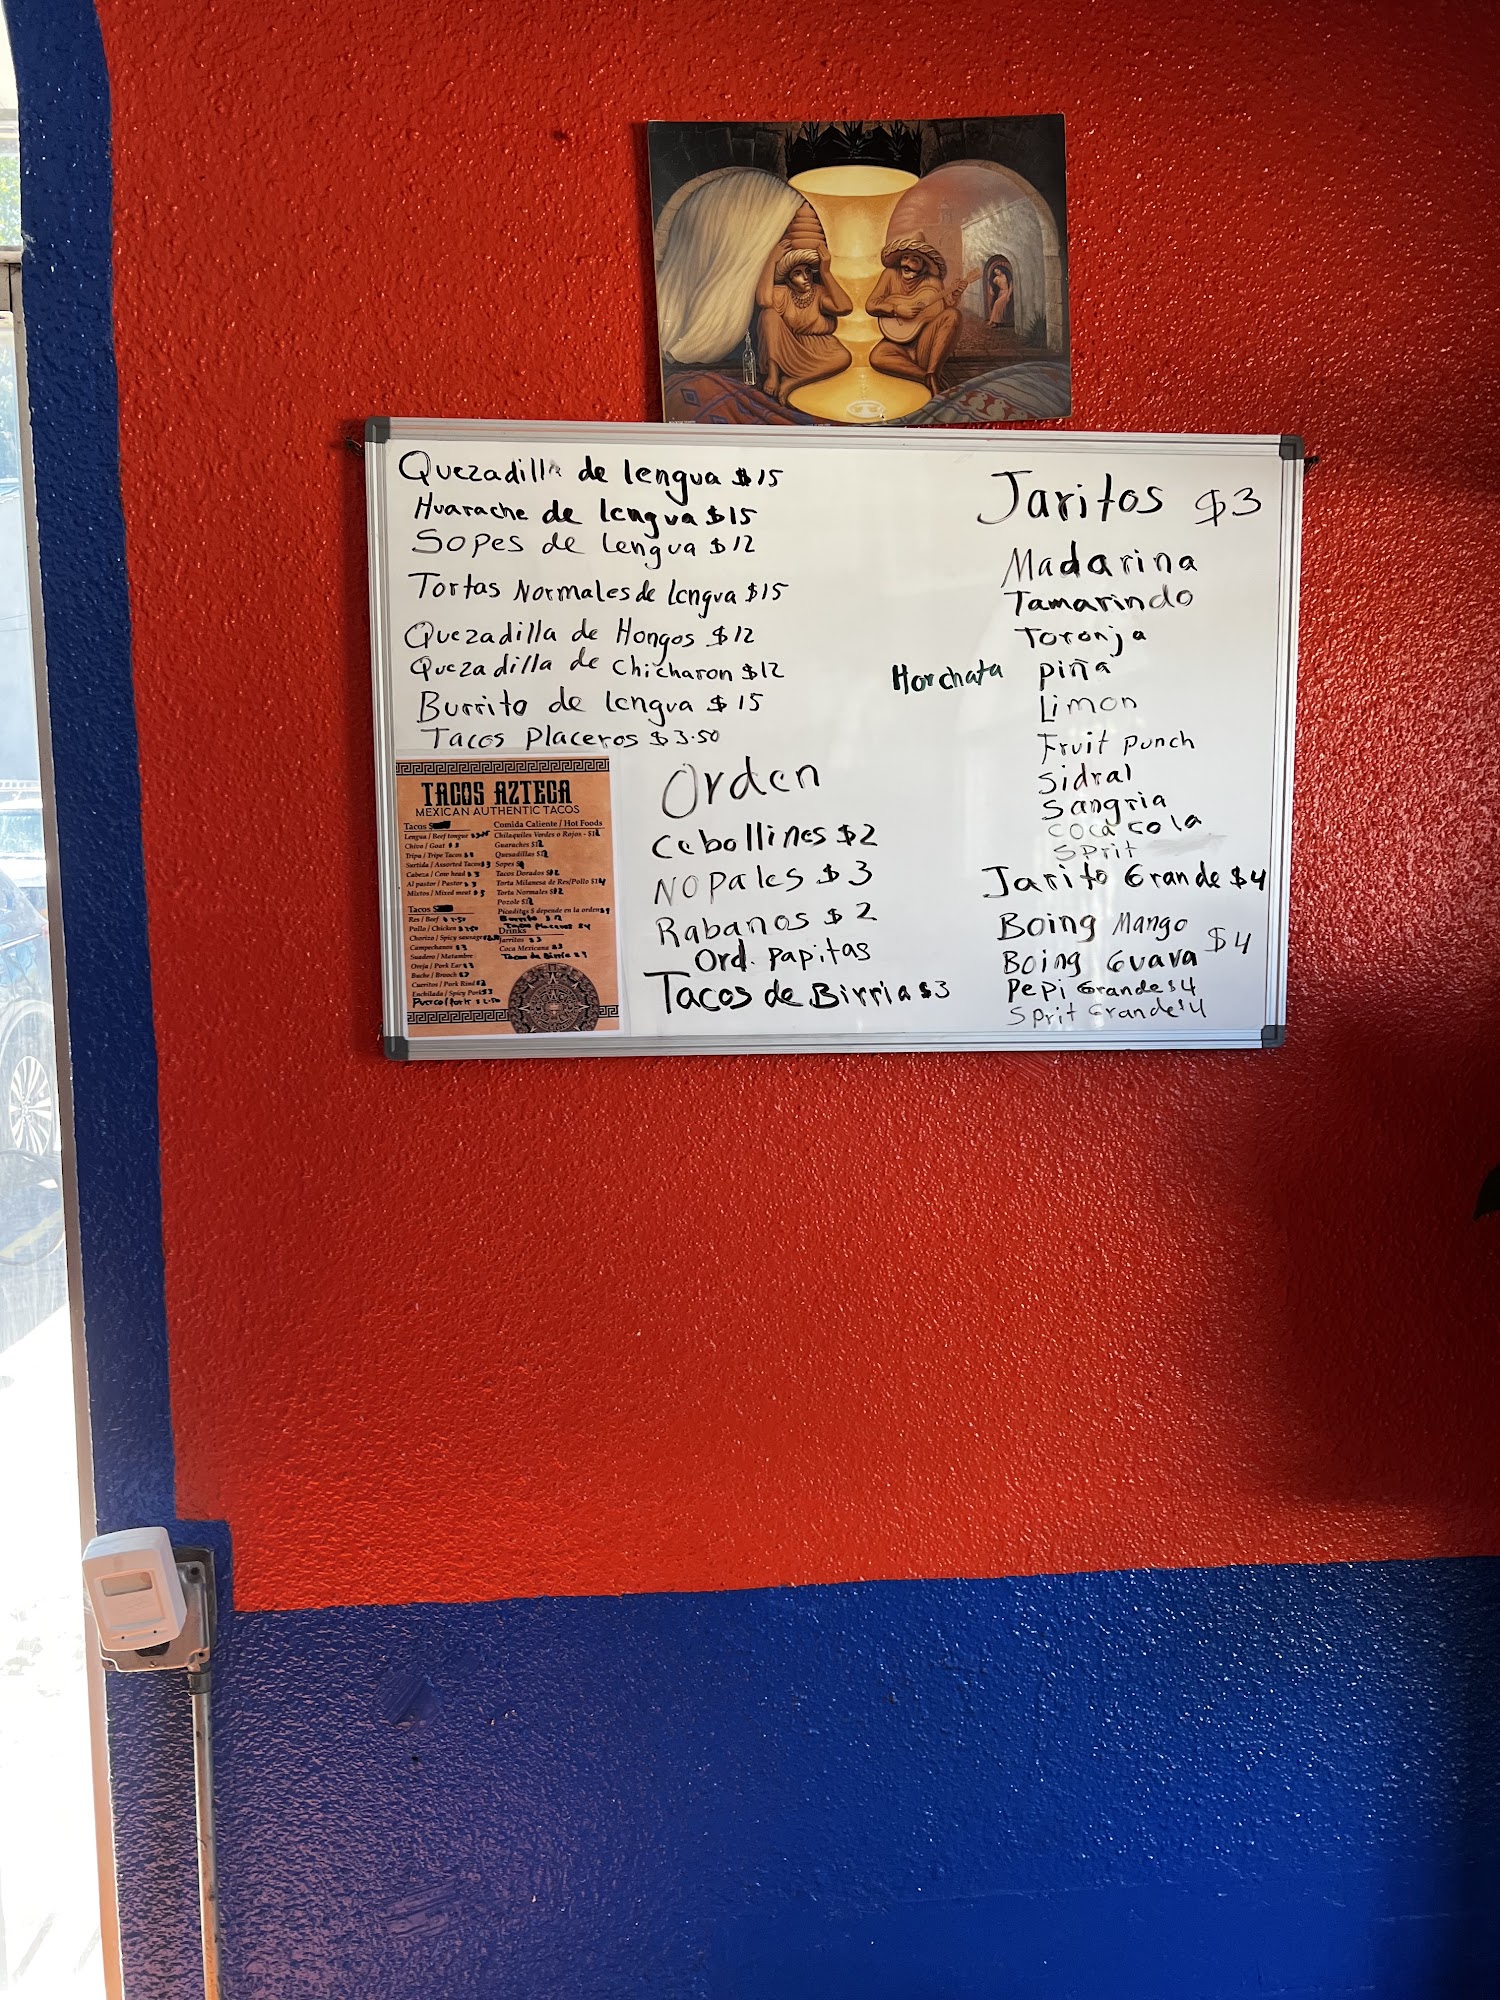 Quezadilla de lengua $15
Huarache de lengua $15
Sopes de Lengua $12
Tortas Normales de Lengua $15
Quezadilla de Hongos $12
Quezadilla de Chicharon $12
Burrito de lengua $15
Tacos Placeros $3.50
TACOS AZTECA
MEXICAN AUTHENTIC TACOS
Tacos $
Lengua / Beef tongue
Chivo / Goat $3
Tripa / Tripe Tacos $4
Surtida / Assorted Tacos $3
Cabeza / Cow head $3
Al pastor / Pastor $3
Mixtos / Mixed meat $3
Tacos $
Res / Beef $2.50
Pollo / Chicken $2.50
Chorizo / Spicy sausage
Campechanos $3
Suadero / Matambre
Oreja / Pork Ear $3
Buche / Brooch $3
Cueritos / Pork Rind $2
Enchilada / Spicy Pork $3
Puerco / Pork $2.50
Comida Caliente / Hot Foods
Chilaquiles Verdes o Rojos - $12
Guaraches $12
Quesadillas $12
Sopes
Tacos Dorados $12
Torta Milanesa de Res/Pollo $14
Torta Normales $12
Pozole $12
Picaditas $ depende en la orden $9
Burrito $12
Tacos Placeros $4
Drinks
Jarritos $3
Coca Mexicana $3
Tacos de Birria $3
Orden
Cebollines $2
Nopales $3
Rabanos $2
Ord. Papitas
Tacos de Birria $3
Jaritos $3
Madarina
Tamarindo
Toronja
Horchata
Piña
Limon
Fruit Punch
Sidral
Sangria
Coca Cola
Sprit
Jarito Grande $4
Boing Mango
Boing Guava $4
Pepi Grande $4
Sprit Grande $4